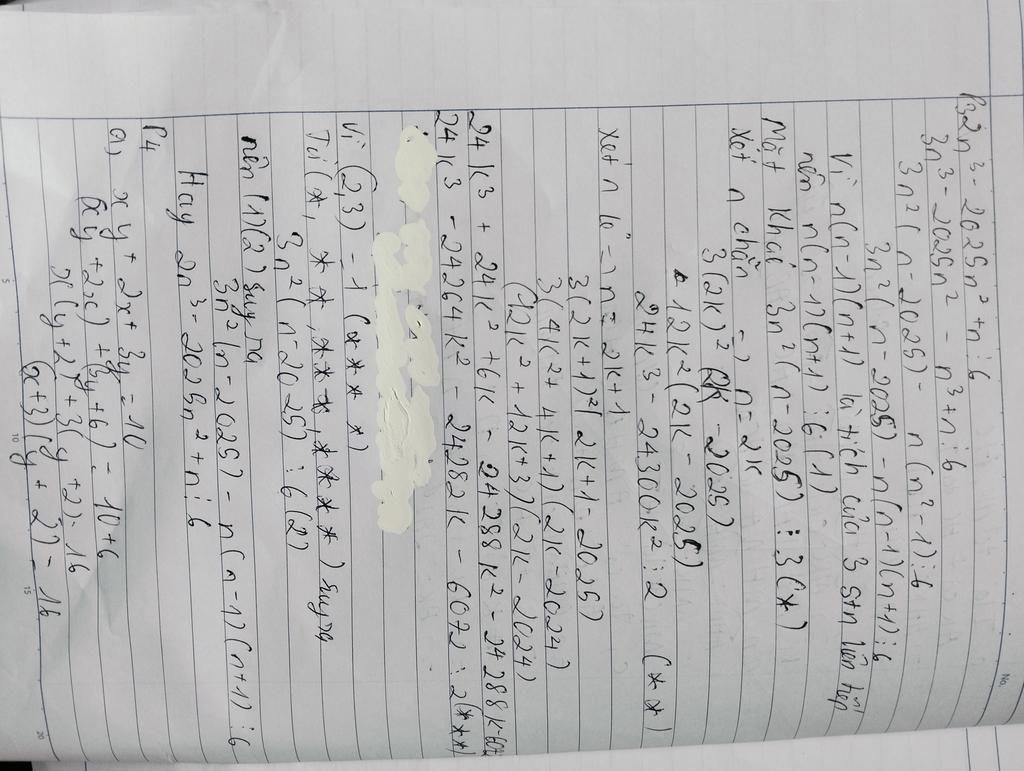 No.
P3, 2n³ - 2025n² + n ⋮ 6
3n³ - 2025n² - n³ + n ⋮ 6
3n² (n - 2025) - n (n² - 1) ⋮ 6
3n² (n - 2025) - n(n-1)(n+1) ⋮ 6
Vì n(n-1)(n+1) là tích của 3 stn liên tiếp
nên n(n-1)(n+1) ⋮ 6 (1)
Mặt khác 3n² (n - 2025) ⋮ 3 (*)
Xét n chẵn => n = 2k
3(2k)² (2k - 2025)
12k² (2k - 2025)
24k³ - 24300k² ⋮ 2 (**)
Xét n lẻ => n = 2k+1
3(2k+1)² (2k+1 - 2025)
3(4k² + 4k + 1)(2k - 2024)
(12k² + 12k + 3)(2k - 2024)
24k³ + 24k² + 6k - 24288k² - 24288k - 6072
24k³ - 24264k² - 24282k - 6072 ⋮ 2 (***)
Vì (2,3) = 1 (****)
Từ (*, **, ***, ****) suy ra
3n² (n - 2025) ⋮ 6 (2)
nên (1)(2) suy ra
3n² (n - 2025) - n (n-1)(n+1) ⋮ 6
Hay 2n³ - 2025n² + n ⋮ 6
P4
a, xy + 2x + 3y = 10
(xy + 2x) + (3y + 6) = 10 + 6
x(y + 2) + 3(y + 2) = 16
(x + 3)(y + 2) = 16
5 10 15 20